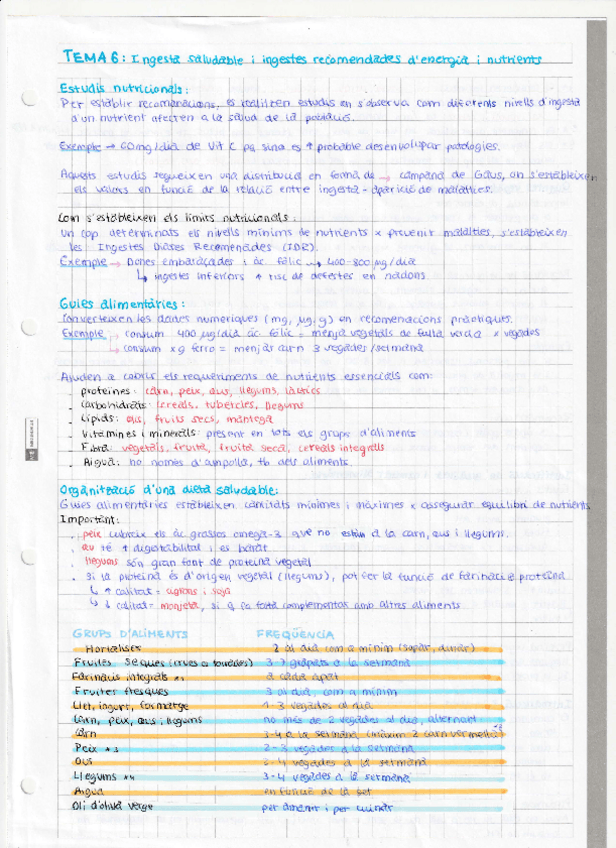 TEMA 6: Ingesta saludable i ingestes recomendades d'energia i nutrients
Estudis nutricionals:
Per establir recomanacions, es realitzen estudis on s'observa com diferents nivells d'ingesta
d'un nutrient afecten a la salut de la població.
Exemple → 60mg/dia de Vit C pq sino es ↑ probable desenvolupar patologies.
Aquests estudis segueixen una distribució en forma de → campana de Gaus, on s'estableixen
els valors en funció de la relació entre ingesta - aparició de malalties.
Com s'estableixen els límits nutricionals:
Un cop determinats els nivells mínims de nutrients x prevenir malalties, s'estableixen
les Ingestes Diàries Recomenades (IDR).
Exemple → Dones embaraçades i àc fòlic → 400-800 µg/dia
↳ ingestes inferiors ↑ risc de defectes en nadons.
Guies alimentàries:
Converteixen les dades numeriques (mg, µg, g) en recomanacions pràctiques.
Exemple → consum 400 µg/dia àc fòlic = menja vegetals de fulla verda x vegades
↳ consum x g ferro = menjar carn 3 vegades/setmana
Ajuden a cobrir els requeriments de nutrients essencials com:
. proteïnes: carn, peix, ous, llegums, làctics
. Carbohidrats: cereals, tubercles, llegums
. Lípids: olis, fruits secs, mantega
. Vitamines i minerals: present en tots els grups d'aliments
. Fibra: vegetals, fruita, fruita seca, cereals integrals
. Aigua: no nomes d'ampolla, tb dels aliments.
Organització d'una dieta saludable:
Guies alimentàries estableixen cantitats mínimes i màximes x assegurar equilibri de nutrients
Important:
. peix cubreix els àc grassos omega-3 que no estan a la carn, ous i llegums.
. ou té ↑ digestabilitat i es barat
. llegums són gran font de proteïna vegetal
. Si la proteïna és d'origen vegetal (llegums), pot fer la funció de farinaci i proteïna
↳ ↑ qualitat = cigrons i soja
↳ ↓ qualitat = mongeta, si q fa falta complementar amb altres aliments
GRUPS D'ALIMENTS FREQÜÈNCIA
Hortalisses 2 al dia com a mínim (sopar, dinar)
Fruites seques (crues o torrades) 3-7 grapats a la setmana
Farinacis integrals *1 a cada àpat
Fruites fresques 3 al dia, com a mínim
Llet, iogurt, formatge 1-3 vegades al dia
Carn, peix, ous i llegums no més de 2 vegades al dia, alternant
Carn 3-4 a la setmana (màxim 2 carn vermella)
Peix *3 2-3 vegades a la setmana
Ous 3-4 vegades a la setmana
Llegums *4 3-4 vegades a la setmana
Aigua en funció de la set
Oli d'oliva verge per amanir i per cuinar